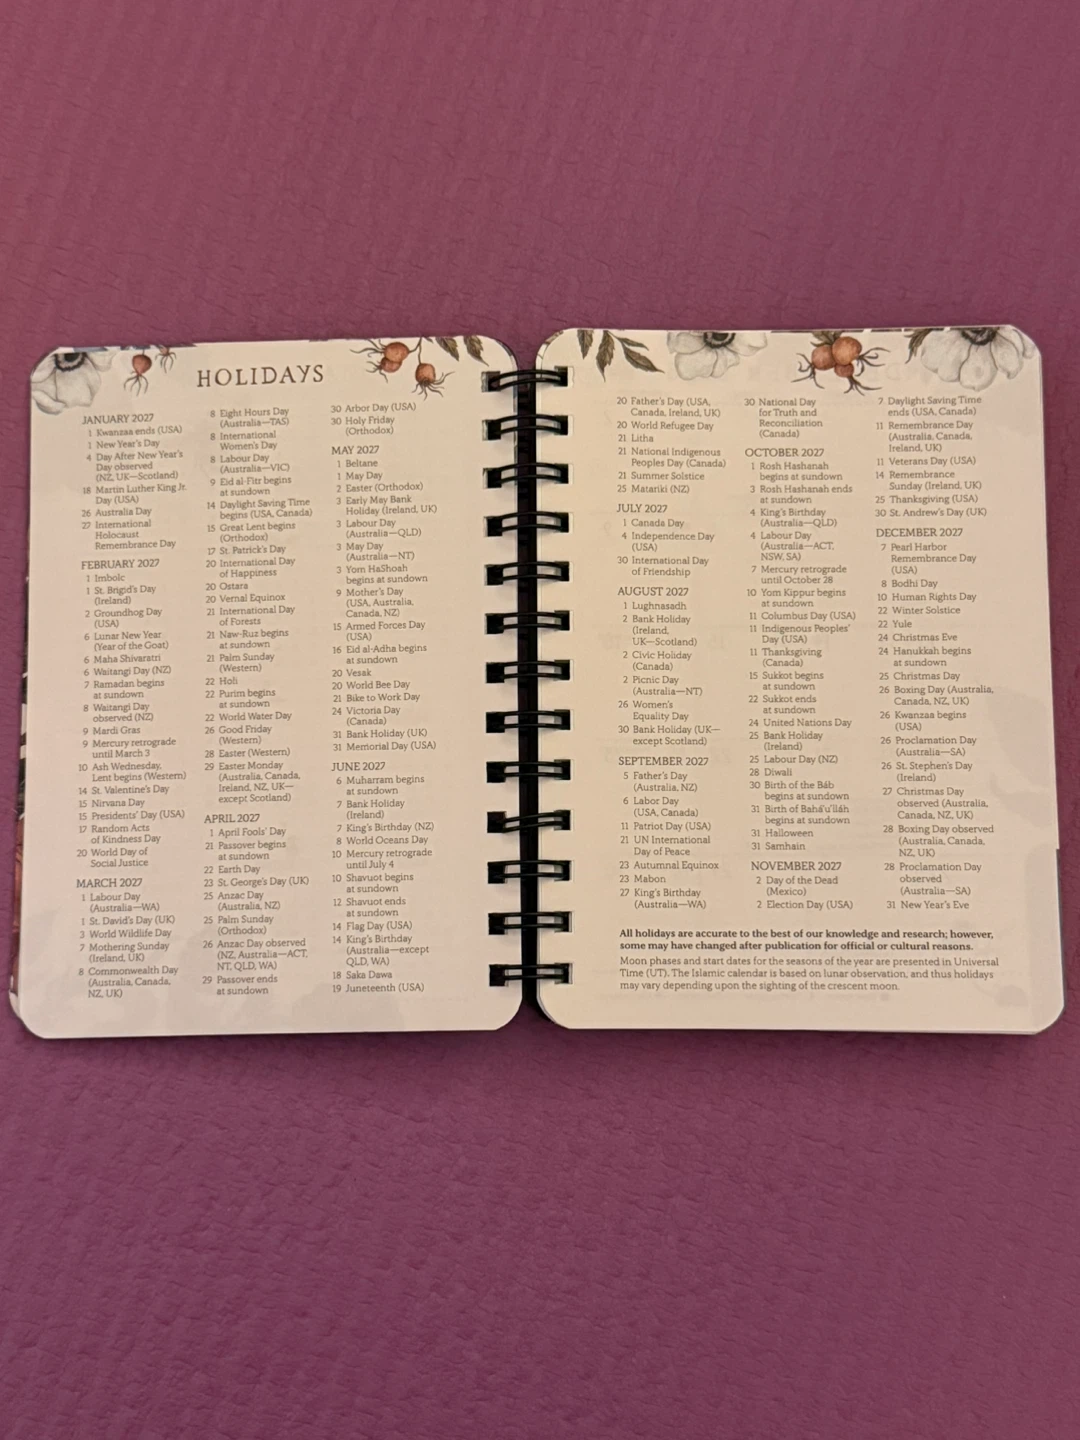 HOLIDAYS
JANUARY 2027
1 Kwanzaa ends (USA)
1 New Year's Day
4 Day After New Year's
Day observed
(NZ, UK—Scotland)
18 Martin Luther King Jr.
Day (USA)
26 Australia Day
27 International
Holocaust
Remembrance Day
FEBRUARY 2027
1 Imbolc
1 St. Brigid's Day
(Ireland)
2 Groundhog Day
(USA)
6 Lunar New Year
(Year of the Goat)
6 Maha Shivaratri
6 Waitangi Day (NZ)
7 Ramadan begins
at sundown
8 Waitangi Day
observed (NZ)
9 Mardi Gras
9 Mercury retrograde
until March 3
10 Ash Wednesday,
Lent begins (Western)
14 St. Valentine's Day
15 Nirvana Day
15 Presidents' Day (USA)
17 Random Acts
of Kindness Day
20 World Day of
Social Justice
MARCH 2027
1 Labour Day
(Australia—WA)
1 St. David's Day (UK)
3 World Wildlife Day
7 Mothering Sunday
(Ireland, UK)
8 Commonwealth Day
(Australia, Canada,
NZ, UK)
8 Eight Hours Day
(Australia—TAS)
8 International
Women's Day
8 Labour Day
(Australia—VIC)
9 Eid al-Fitr begins
at sundown
14 Daylight Saving Time
begins (USA, Canada)
15 Great Lent begins
(Orthodox)
17 St. Patrick's Day
20 International Day
of Happiness
20 Ostara
20 Vernal Equinox
21 International Day
of Forests
21 Naw-Ruz begins
at sundown
21 Palm Sunday
(Western)
22 Holi
22 Purim begins
at sundown
22 World Water Day
26 Good Friday
(Western)
28 Easter (Western)
29 Easter Monday
(Australia, Canada,
Ireland, NZ, UK—
except Scotland)
APRIL 2027
1 April Fools' Day
21 Passover begins
at sundown
22 Earth Day
23 St. George's Day (UK)
25 Anzac Day
(Australia, NZ)
25 Palm Sunday
(Orthodox)
26 Anzac Day observed
(NZ, Australia—ACT,
NT, QLD, WA)
29 Passover ends
at sundown
30 Arbor Day (USA)
30 Holy Friday
(Orthodox)
MAY 2027
1 Beltane
1 May Day
2 Easter (Orthodox)
3 Early May Bank
Holiday (Ireland, UK)
3 Labour Day
(Australia—QLD)
3 May Day
(Australia—NT)
3 Yom HaShoah
begins at sundown
9 Mother's Day
(USA, Australia,
Canada, NZ)
15 Armed Forces Day
(USA)
16 Eid al-Adha begins
at sundown
20 Vesak
20 World Bee Day
21 Bike to Work Day
24 Victoria Day
(Canada)
31 Bank Holiday (UK)
31 Memorial Day (USA)
JUNE 2027
6 Muharram begins
at sundown
7 Bank Holiday
(Ireland)
7 King's Birthday (NZ)
8 World Oceans Day
10 Mercury retrograde
until July 4
10 Shavuot begins
at sundown
12 Shavuot ends
at sundown
14 Flag Day (USA)
14 King's Birthday
(Australia—except
QLD, WA)
18 Saka Dawa
19 Juneteenth (USA)
20 Father's Day (USA,
Canada, Ireland, UK)
20 World Refugee Day
21 Litha
21 National Indigenous
Peoples Day (Canada)
21 Summer Solstice
25 Matariki (NZ)
JULY 2027
1 Canada Day
4 Independence Day
(USA)
30 International Day
of Friendship
AUGUST 2027
1 Lughnasadh
2 Bank Holiday
(Ireland,
UK—Scotland)
2 Civic Holiday
(Canada)
2 Picnic Day
(Australia—NT)
26 Women's
Equality Day
30 Bank Holiday (UK—
except Scotland)
SEPTEMBER 2027
5 Father's Day
(Australia, NZ)
6 Labor Day
(USA, Canada)
11 Patriot Day (USA)
21 UN International
Day of Peace
23 Autumnal Equinox
23 Mabon
27 King's Birthday
(Australia—WA)
30 National Day
for Truth and
Reconciliation
(Canada)
OCTOBER 2027
1 Rosh Hashanah
begins at sundown
3 Rosh Hashanah ends
at sundown
4 King's Birthday
(Australia—QLD)
4 Labour Day
(Australia—ACT,
NSW, SA)
7 Mercury retrograde
until October 28
10 Yom Kippur begins
at sundown
11 Columbus Day (USA)
11 Indigenous Peoples'
Day (USA)
11 Thanksgiving
(Canada)
15 Sukkot begins
at sundown
22 Sukkot ends
at sundown
24 United Nations Day
25 Bank Holiday
(Ireland)
25 Labour Day (NZ)
28 Diwali
30 Birth of the Báb
begins at sundown
31 Birth of Bahá'u'lláh
begins at sundown
31 Halloween
31 Samhain
NOVEMBER 2027
2 Day of the Dead
(Mexico)
2 Election Day (USA)
7 Daylight Saving Time
ends (USA, Canada)
11 Remembrance Day
(Australia, Canada,
Ireland, UK)
11 Veterans Day (USA)
14 Remembrance
Sunday (Ireland, UK)
25 Thanksgiving (USA)
30 St. Andrew's Day (UK)
DECEMBER 2027
7 Pearl Harbor
Remembrance Day
(USA)
8 Bodhi Day
10 Human Rights Day
22 Winter Solstice
22 Yule
24 Christmas Eve
24 Hanukkah begins
at sundown
25 Christmas Day
26 Boxing Day (Australia,
Canada, NZ, UK)
26 Kwanzaa begins
(USA)
26 Proclamation Day
(Australia—SA)
26 St. Stephen's Day
(Ireland)
27 Christmas Day
observed (Australia,
Canada, NZ, UK)
28 Boxing Day observed
(Australia, Canada,
NZ, UK)
28 Proclamation Day
observed
(Australia—SA)
31 New Year's Eve
All holidays are accurate to the best of our knowledge and research; however,
some may have changed after publication for official or cultural reasons.
Moon phases and start dates for the seasons of the year are presented in Universal
Time (UT). The Islamic calendar is based on lunar observation, and thus holidays
may vary depending upon the sighting of the crescent moon.